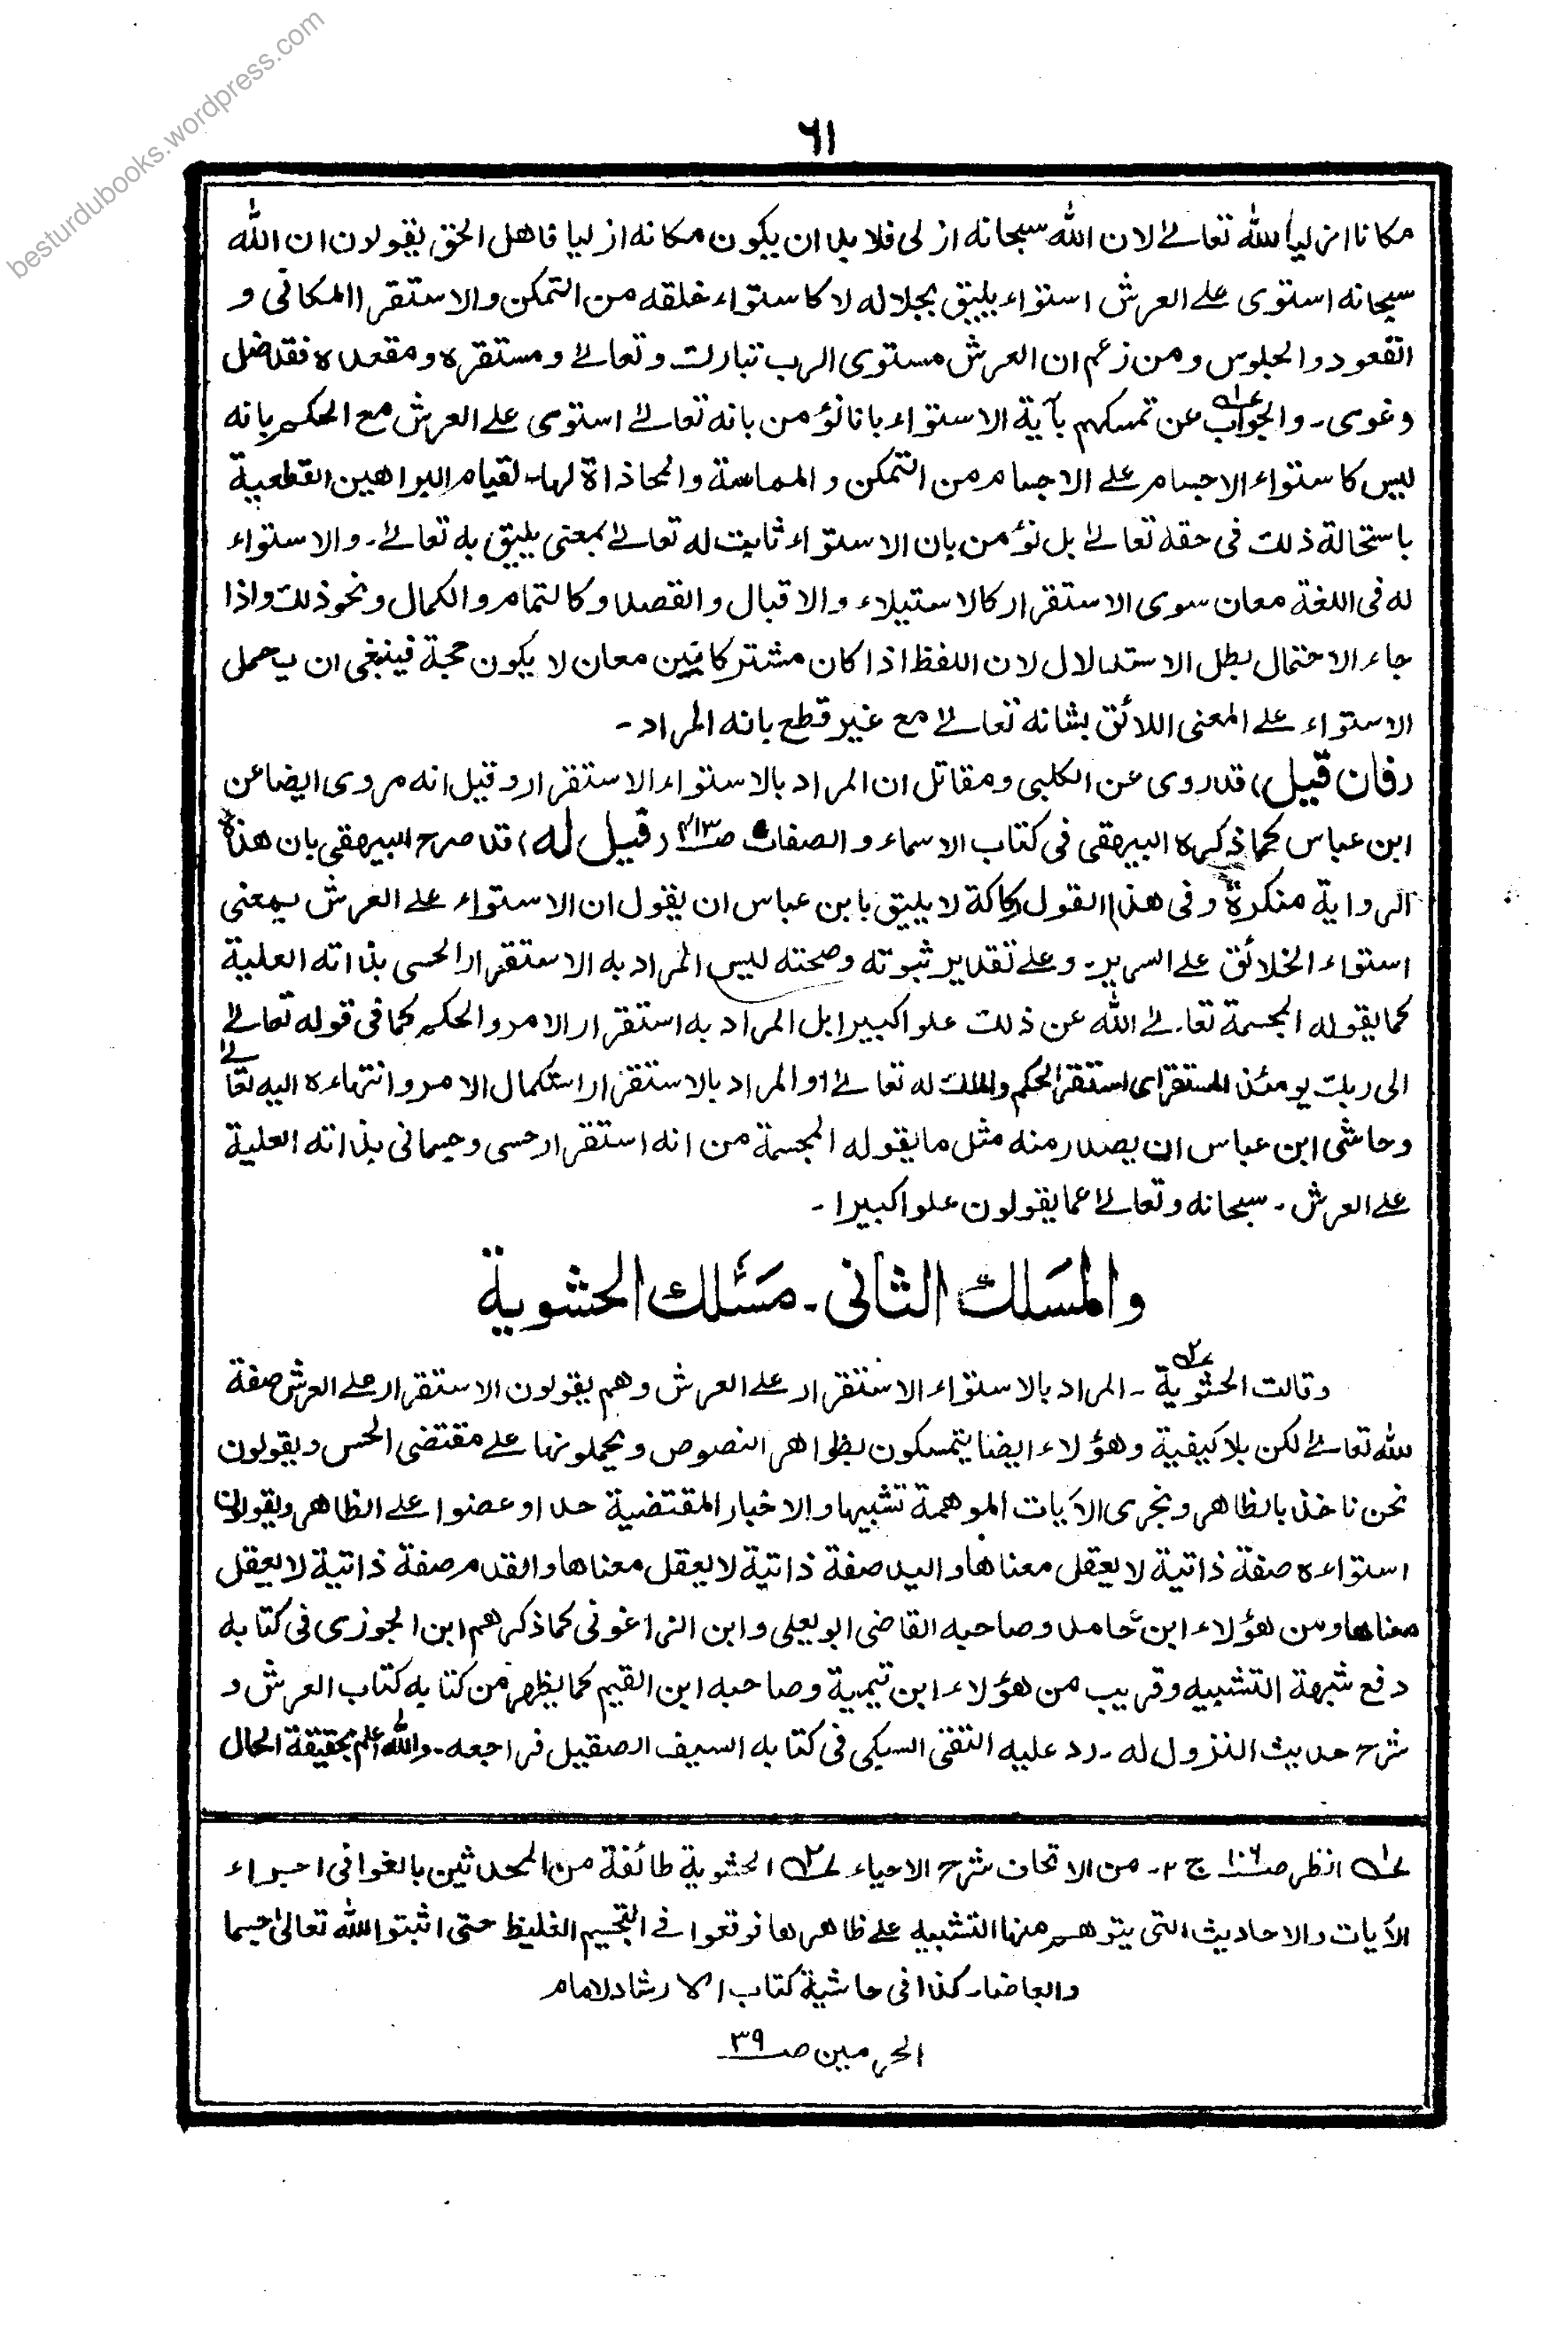 besturdubooks.wordpress.com
٦١
مكانا ازليا لله تعالے لان الله سبحانه ازلى فلا بد ان يكون مكانه ازليا فاهل الحق يقولون ان الله
سبحانه استوى علے العرش استواء يليق بجلاله لا كاستواء خلقه من التمكن والاستقرار المكانى و
القعود والجلوس ومن زعم ان العرش مستوى الرب تبارك وتعالے ومستقره ومقعده فقد ضل
وغوى ـ والجواب عن تمسكهم بآية الاستواء بانا نؤمن بانه تعالے استوى علے العرش مع الحكم بانه
ليس كاستواء الاجسام علے الاجسام من التمكن والمماسة والمحاذاة لها ـ لقيام البراهين القطعية
باستحالة ذلك فى حقه تعالے بل نؤمن بان الاستواء ثابت له تعالے بمعنى يليق به تعالے ـ والاستواء
له فى اللغة معان سوى الاستقرار كالاستيلاء والاقبال والقصد وكالتمام والكمال ونحو ذلك واذا
جاء الاحتمال بطل الاستدلال لان اللفظ اذا كان مشتركا بين معان لا يكون حجة فينبغى ان يحمل
الاستواء علے المعنى اللائق بشانه تعالے مع غير قطع بانه المراد ـ
(فان قيل) قد روى عن الكلبى ومقاتل ان المراد بالاستواء الاستقرار وقيل انه مروى ايضا عن
ابن عباس كما ذكره البيهقى فى كتاب الاسماء والصفات صـ٤١٣ (قيل له) قد صرح البيهقى بان هذه
الرواية منكرة وفى هذا القول ركاكة لا يليق بابن عباس ان يقول ان الاستواء علے العرش بمعنى
استواء الخلائق علے السرير ـ وعلے تقدير ثبوته وصحته ليس المراد به الاستقرار الحسى بذاته العلية
كما يقوله المجسمة تعالے الله عن ذلك علوا كبيرا بل المراد به استقرار الامر والحكم كما فى قوله تعالے
الى ربك يومئذ المستقر اى استقر الحكم والملك له تعالے او المراد بالاستقرار استكمال الامر وانتهاءه اليه تعالے
وحاشى ابن عباس ان يصدر منه مثل ما يقوله المجسمة من انه استقرار حسى وجسمانى بذاته العلية
علے العرش ـ سبحانه وتعالے عما يقولون علوا كبيرا ـ
والمسلك الثانى ـ مسلك الحشوية
وقالت الحشوية ٢ـ المراد بالاستواء الاستقرار علے العرش وهم يقولون الاستقرار علے العرش صفة
لله تعالے لكن بلا كيفية وهؤلاء ايضا يتمسكون بظواهر النصوص ويحملونها علے مقتضى الحس ويقولون
نحن ناخذ بالظاهر ونجرى الآيات الموهمة تشبيها والاخبار المقتضية حدا وعضوا علے الظاهر ويقولون
استواءه صفة ذاتية لا يعقل معناها واليد صفة ذاتية لا يعقل معناها والقدم صفة ذاتية لا يعقل
معناها ومن هؤلاء ابن حامد وصاحبه القاضى ابو يعلى وابن الزاغونى كما ذكرهم ابن الجوزى فى كتابه
دفع شبهة التشبيه وقريب من هؤلاء ابن تيمية وصاحبه ابن القيم كما يظهر من كتابه كتاب العرش و
شرح حديث النزول له ـ رد عليه التقى السبكى فى كتابه السيف الصقيل فراجعه ـ والله اعلم بحقيقة الحال
١ انظر صـ١٠٦ ج ٢ ـ من الاتحاف شرح الاحياء ٢ الحشوية طائفة من المحدثين بالغوا فى اجراء
الآيات والاحاديث التى يتوهم منها التشبيه علے ظاهرها فوقعوا فے التجسيم الغليظ حتى اثبتوا لله تعالى جسما
وابعاضا ـ كذا فى حاشية كتاب الارشاد لامام
الحرمين صـ٣٩